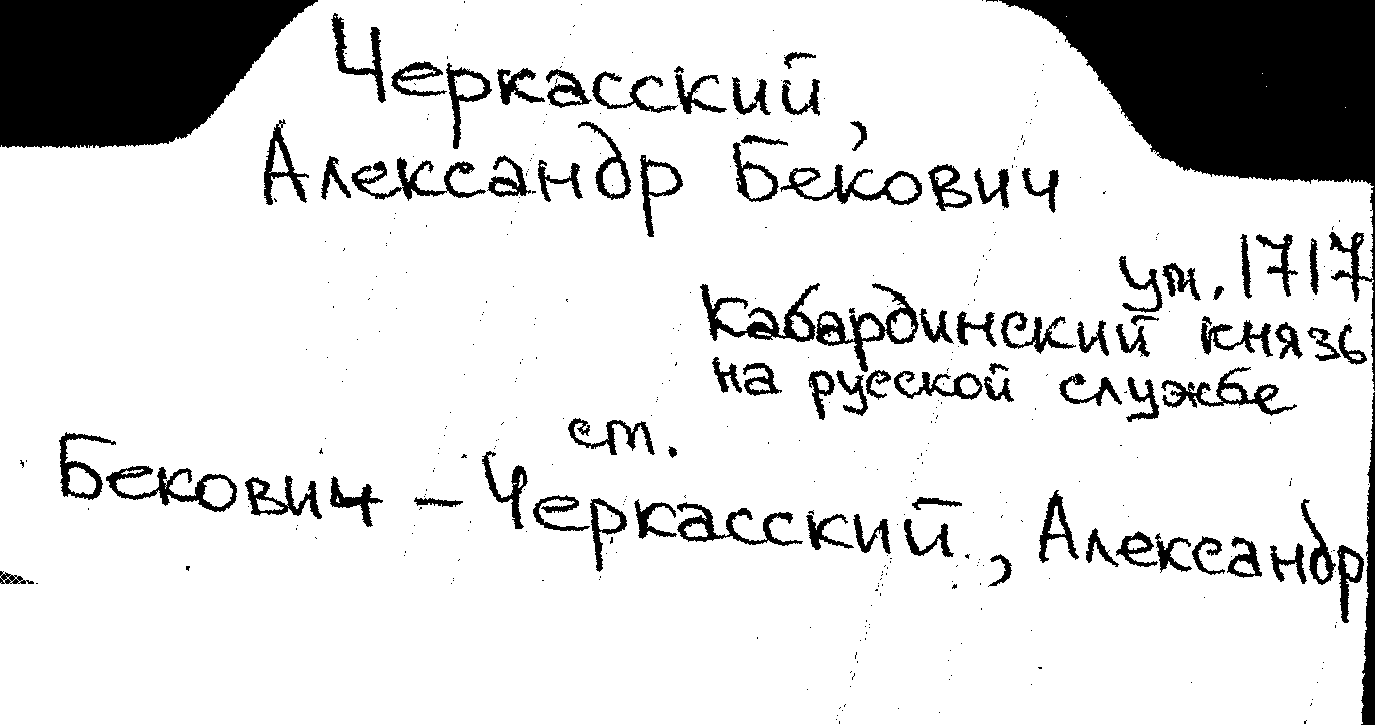 Черкасский,
Александр Бекович
ум. 1717
Кабардинский князь
на русской службе
ст.
Бекович - Черкасский, Александр